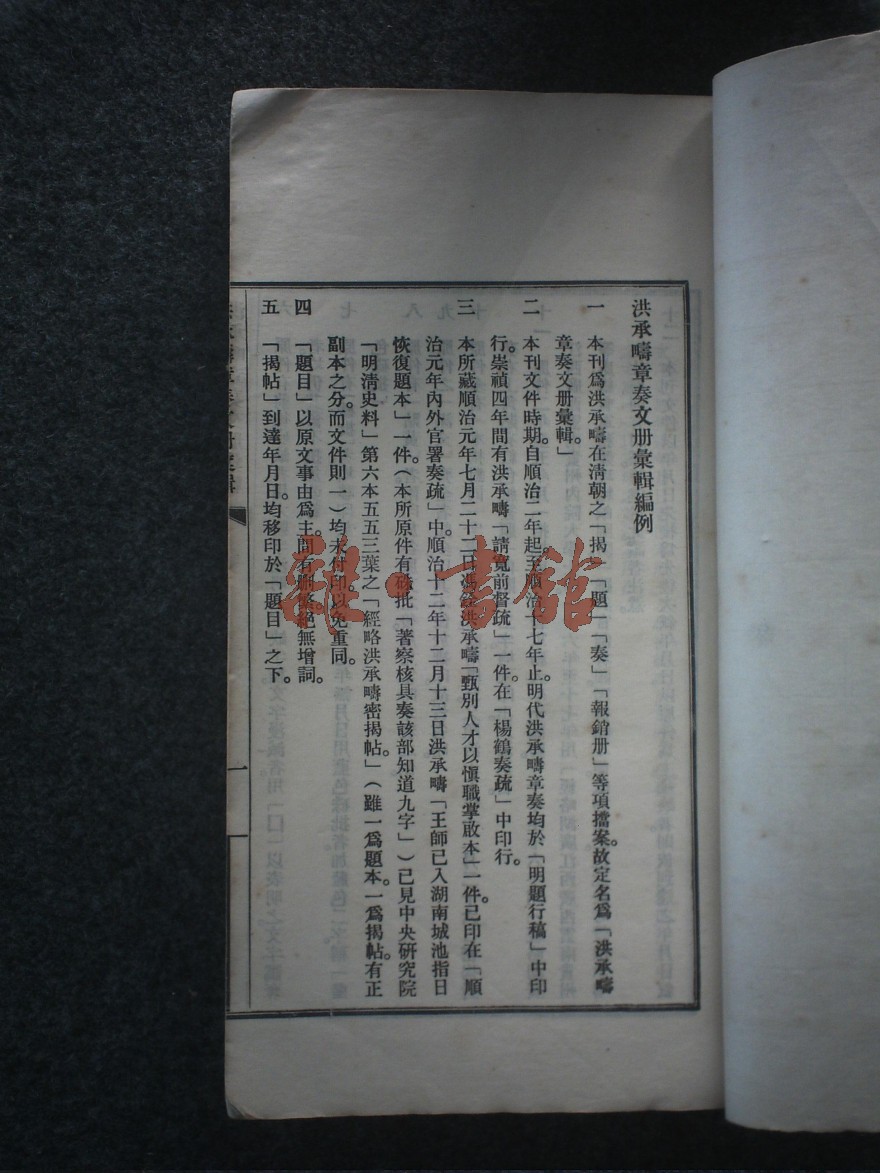 洪承疇章奏文册彙輯編例
一 本刊爲洪承疇在清朝之「揭」「題」「奏」「報銷册」等項擋案。故定名爲「洪承疇
章奏文册彙輯」
二 本刊文件時期。自順治二年起至順治十七年止。明代洪承疇章奏均於「明題行稿」中印
行。崇禎四年間有洪承疇「請寬前督疏」一件。在「楊鶴奏疏」中印行。
三 本所藏順治元年七月二十二日馮銓洪承疇「甄别人才以愼職掌啟本」一件。已印在「順
治元年内外官署奏疏」中。順治十二年十二月十三日洪承疇「王師已入湖南城池指日
恢復題本」一件(本所原件有硃批「著察核具奏該部知道九字」)已見中央研究院
「明清史料」第六本五五三葉之「經略洪承疇密揭帖」(雖一爲題本。一爲揭帖。有正
副本之分。而文件則一)均未付印。以免重同。
四 「題目」以原文事由爲主。間有删繁。絕無增詞。
五 「揭帖」到達年月日。均移印於「題目」之下。
一
雜·書館